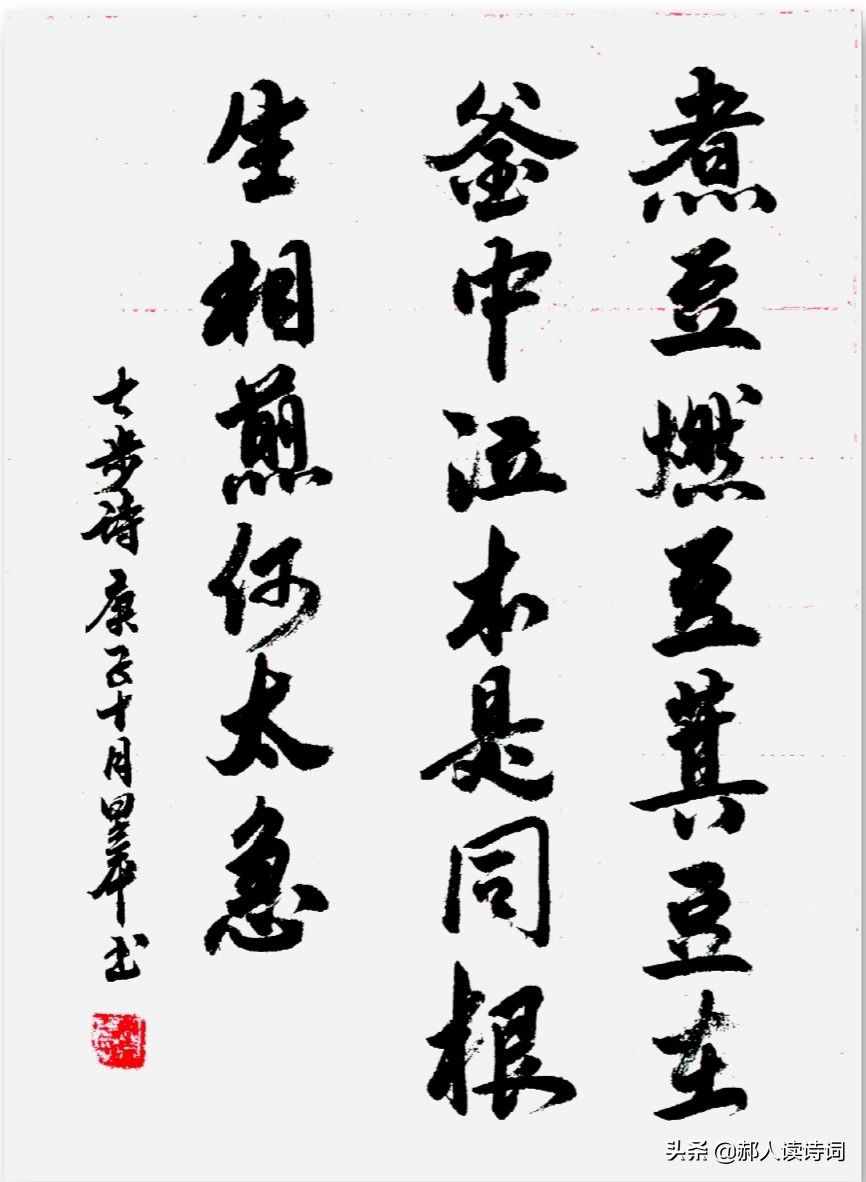 煮豆燃豆萁豆在
釜中泣本是同根
生相煎何太急
七步诗庚子十月
头条 @郝人读诗词